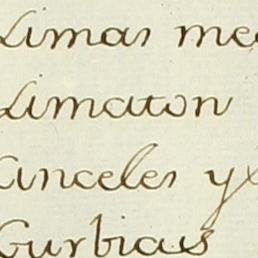 Limas me
Limaton
Canceles y
Gurbias